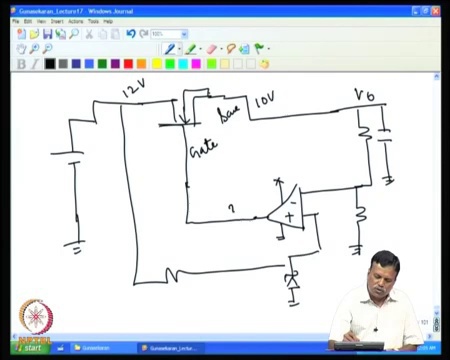 Gunasekaran_Lecture17 - Windows Journal
File Edit View Insert Actions Tools Help
100%
B I
12V
10V
V0
Gate
?
-
+
NPTEL
start
Gunasekaran
Gunasekaran_Lectu...